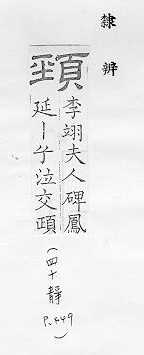 隸辨
頸
李翊夫人碑鳳
延｜兮泣交頸
(四十靜
P.449)